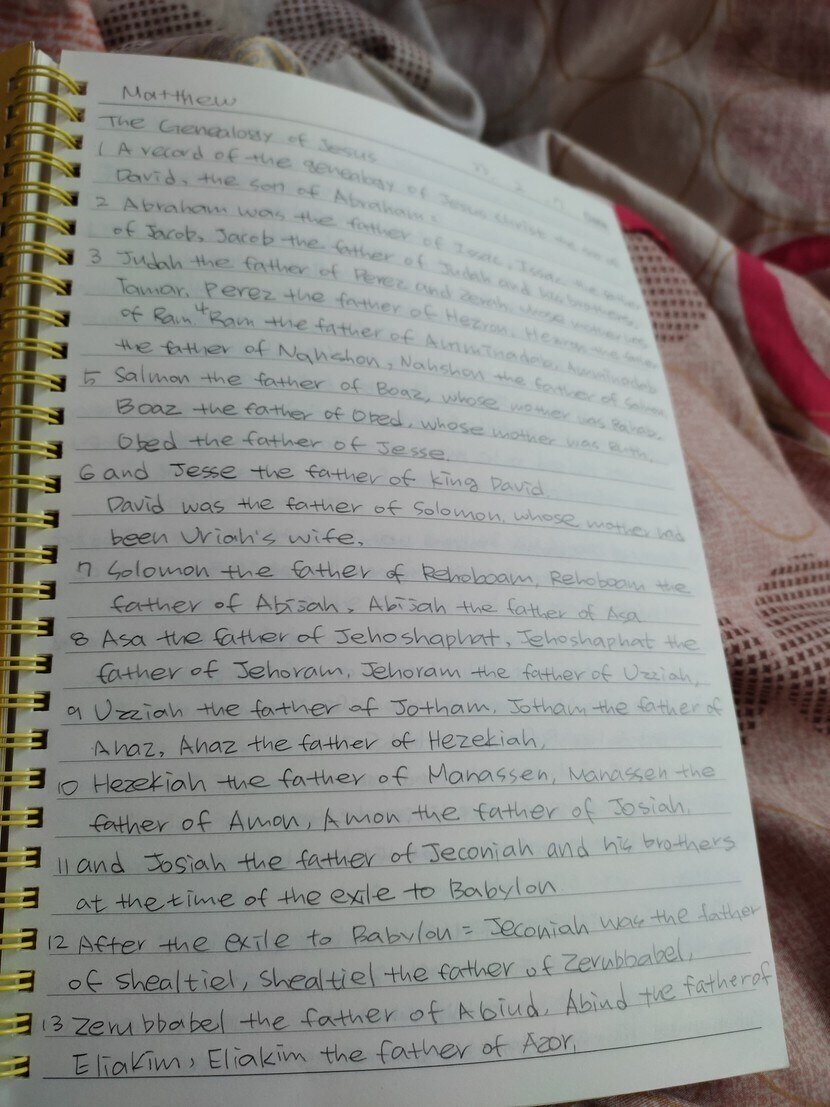 Matthew
The Genealogy of Jesus
1 A record of the genealogy of Jesus Christ the son of
David, the son of Abraham:
2 Abraham was the father of Isaac, Isaac the father
of Jacob, Jacob the father of Judah and his brothers,
3 Judah the father of Perez and Zerah, whose mother was
Tamar, Perez the father of Hezron, Hezron the father
of Ram 4 Ram the father of Amminadab, Amminadab
the father of Nahshon, Nahshon the father of Salmon
5 Salmon the father of Boaz, whose mother was Rahab,
Boaz the father of Obed, whose mother was Ruth,
Obed the father of Jesse,
6 and Jesse the father of king David.
David was the father of Solomon, whose mother had
been Uriah's wife,
7 Solomon the father of Rehoboam, Rehoboam the
father of Abisah, Abisah the father of Asa
8 Asa the father of Jehoshaphat, Jehoshaphat the
father of Jehoram, Jehoram the father of Uzziah,
9 Uzziah the father of Jotham, Jotham the father of
Ahaz, Ahaz the father of Hezekiah,
10 Hezekiah the father of Manassen, Manassen the
father of Amon, Amon the father of Josiah,
11 and Josiah the father of Jeconiah and his brothers
at the time of the exile to Babylon
12 After the exile to Babylon = Jeconiah was the father
of shealtiel, Shealtiel the father of Zerubbabel,
13 Zerubbabel the father of Abiud, Abind the father of
Eliakim, Eliakim the father of Azor,